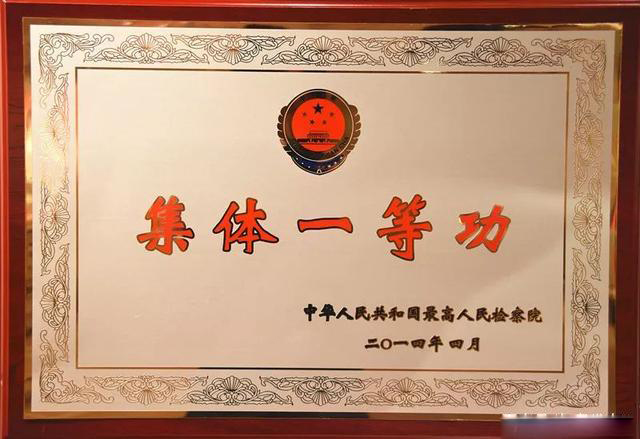 集体一等功
中华人民共和国最高人民检察院
二〇一四年四月